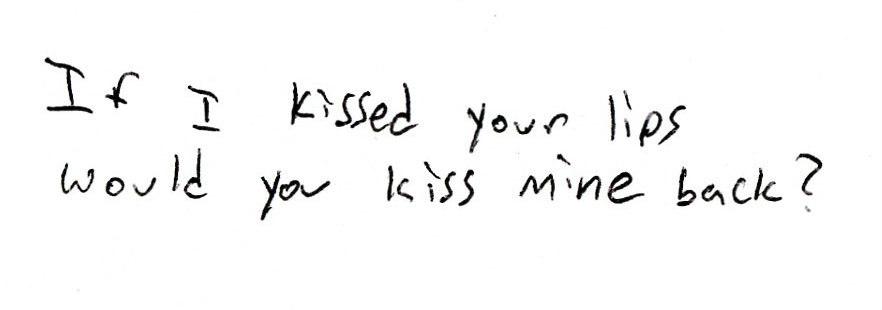 If I kissed your lips
would you kiss mine back?